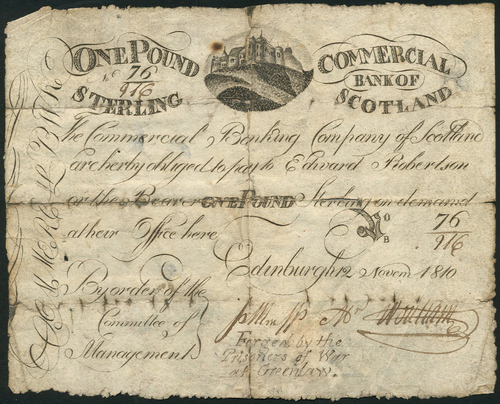 ONE POUND
No 76
916
STERLING
COMMERCIAL
BANK OF
SCOTLAND
The Commercial Banking Company of Scotland
are herby obliged to pay to Edward Robertson
or the Bearer ONE POUND Sterling on demand
at their Office here
No B 76
916
Edinburgh 12 Novem 1810
By order of the
Committee of
Management
Forged by the
Prisoners of War
at Greenlaw.